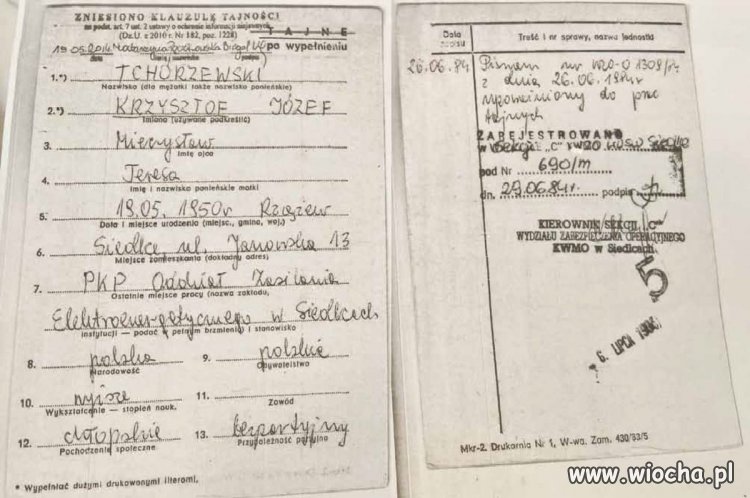 ZNIESIONO KLAUZULĘ TAJNOŚCI
na podst. art. 7 ust. 2 ustawy o ochronie informacji niejawnych
(Dz.U. z 2010 r. Nr 182, poz. 1228)
TAJNE
po wypełnieniu
19.05.2016
data (imię i nazwisko) podpis
1.*) TCHÓRZEWSKI
Nazwisko (dla mężatki także nazwisko panieńskie)
2.*) KRZYSZTOF JÓZEF
Imiona (używane podkreślić)
3. Mieczysław
Imię ojca
4. Teresa
Imię i nazwisko panieńskie matki
5. 19.05.1950r Rzążew
Data i miejsce urodzenia (miejsc., gmina, woj.)
6. Siedlce ul. Janowska 13
Miejsce zamieszkania (dokładny adres)
7. PKP Oddział Zasilania
Ostatnie miejsce pracy (nazwa zakładu,
Elektroenergetycznego w Siedlcach
instytucji — podać w pełnym brzmieniu i stanowisko
8. polska 9. polskie
Narodowość Obywatelstwo
10. wyższe 11.
Wykształcenie — stopień nauk. Zawód
12. chłopskie 13. bezpartyjny
Pochodzenie społeczne Przynależność partyjna
* Wypełniać dużymi drukowanymi literami.
Data zapisu Treść i nr sprawy, nazwa jednostki
26.06.84 Pismem nr
z dnia 26.06.1984r
do prac
tajnych
ZAREJESTROWANO
w Sekcji „C" KWMO Siedlce
pod Nr 690/m
dn. 29.06.84r. podpis
KIEROWNIK SEKCJI „C"
WYDZIAŁU ZABEZPIECZENIA OPERACYJNEGO
KWMO w Siedlcach
5
6. LIPCA
Mkr-2. Drukarnia Nr 1, W-wa. Zam. 430/83/5
www.wiocha.pl